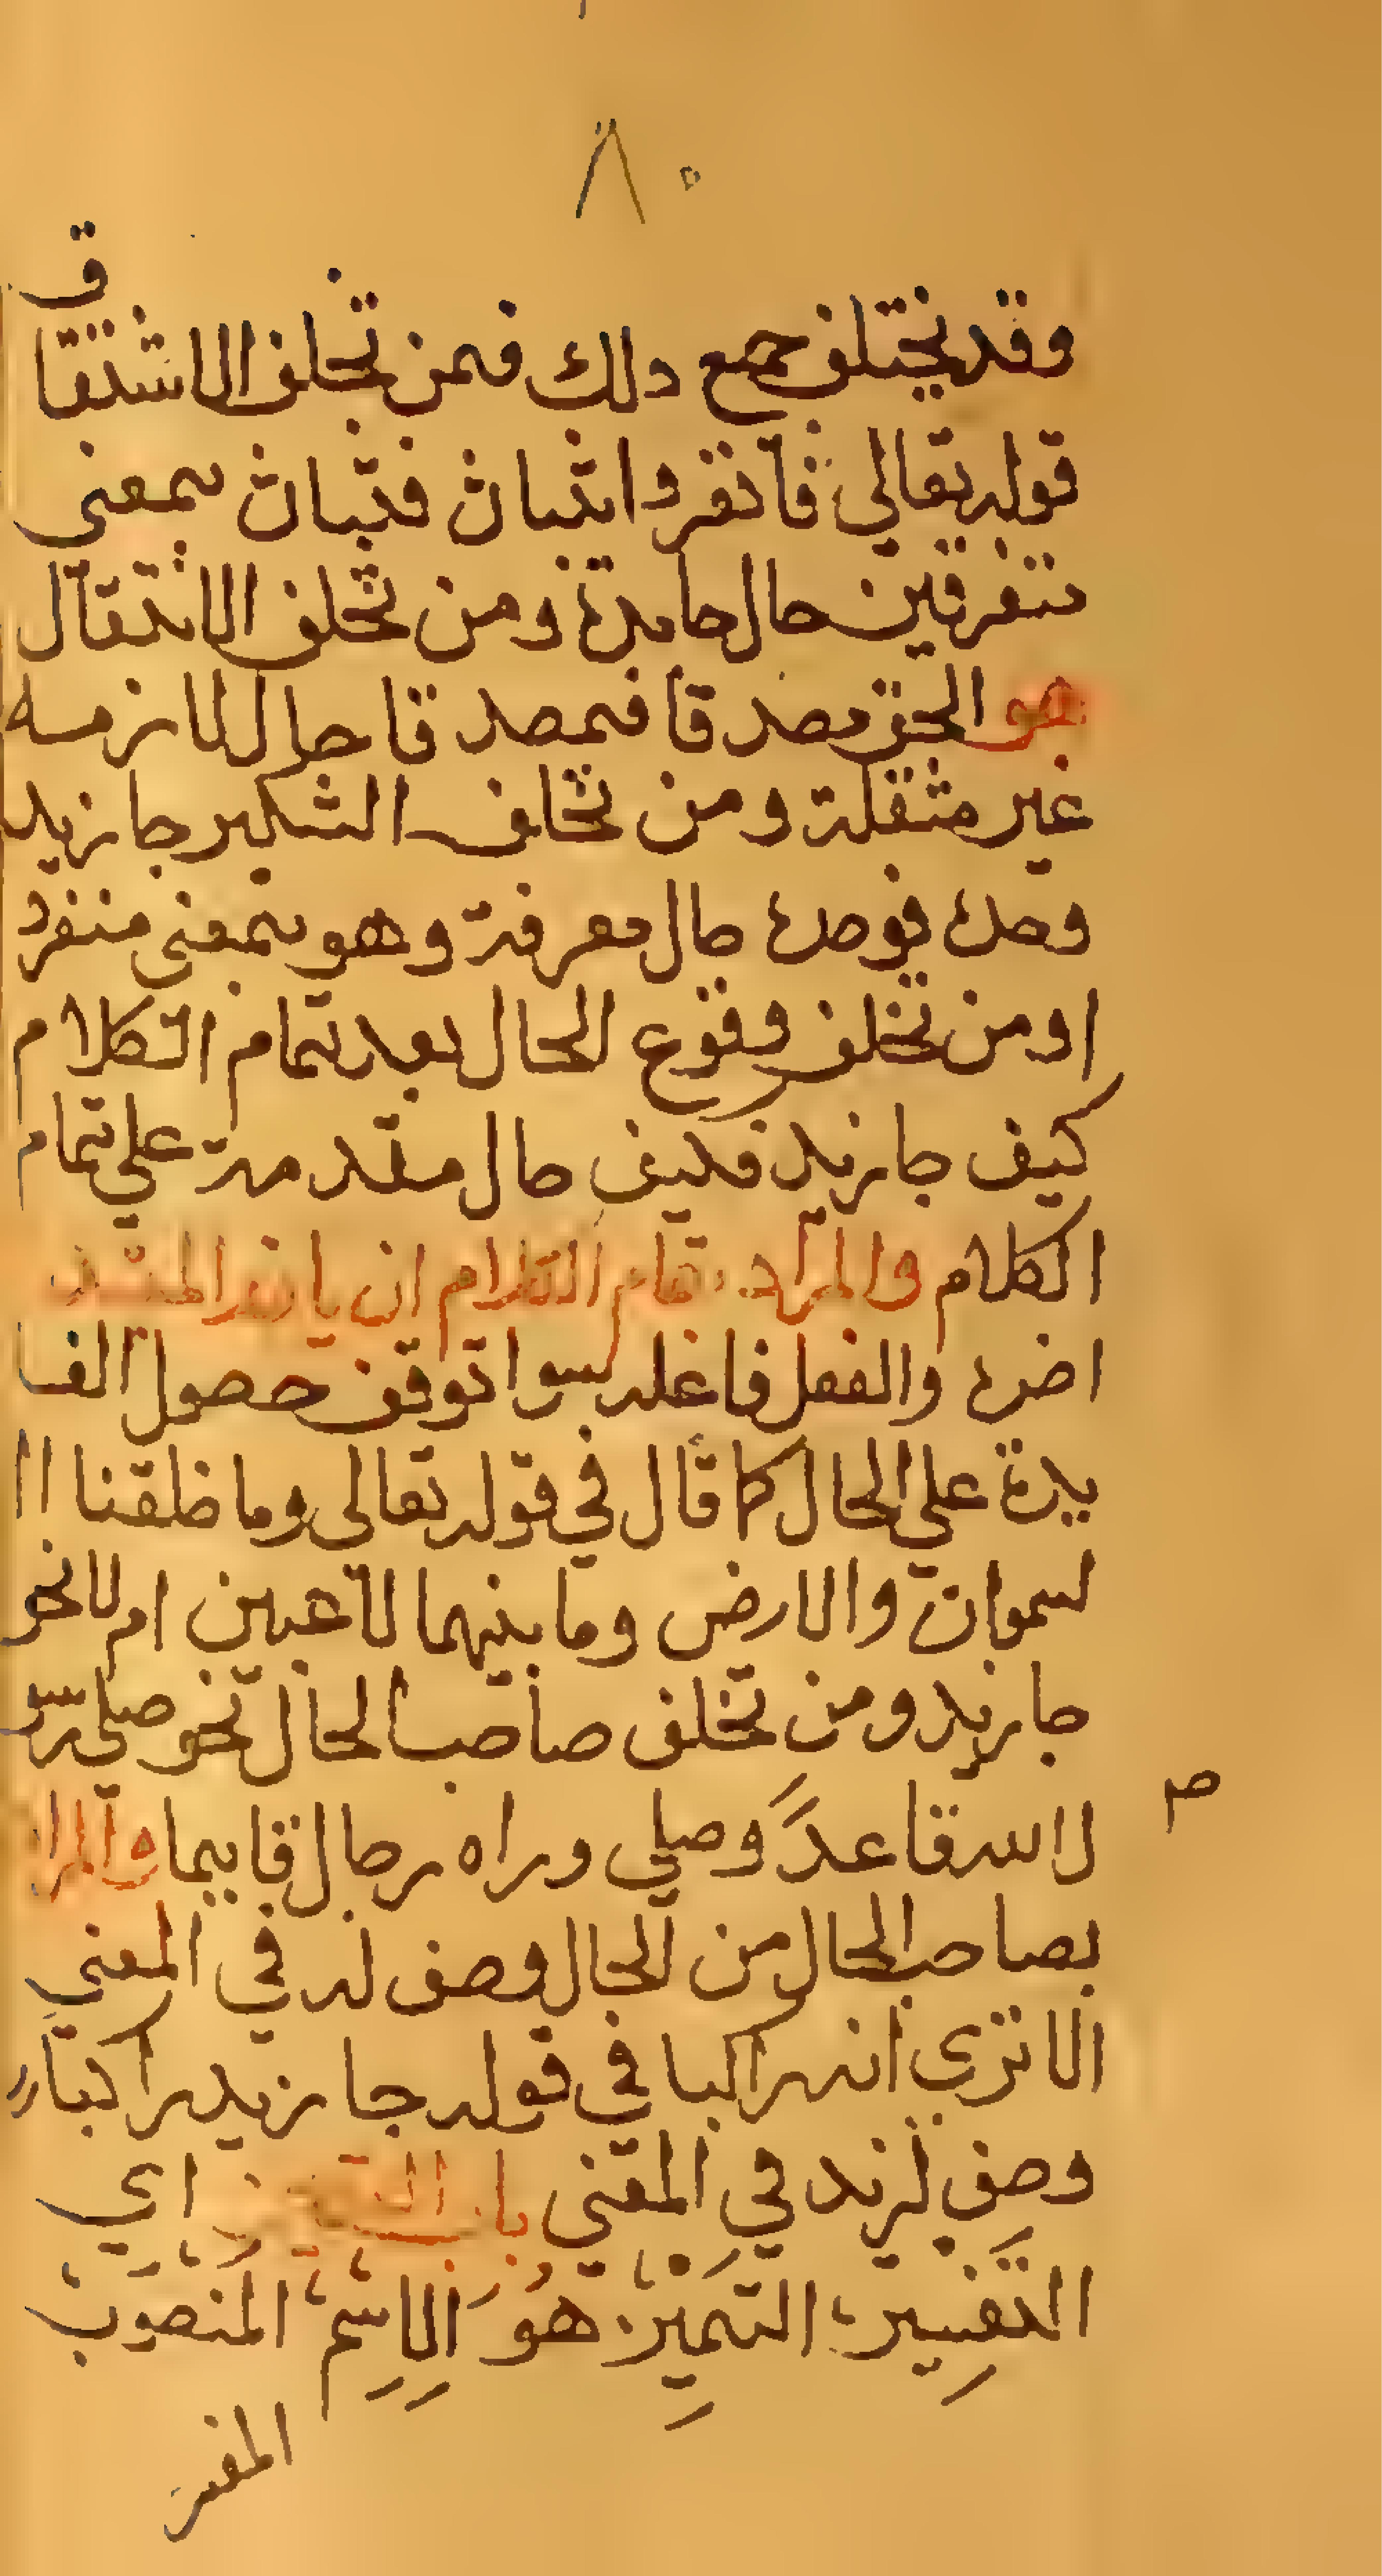 ٨٠
وقد يختلف جميع ذلك فمن تخلف الاشتقاق
قوله تعالى فانفروا ثبات فثبات بمعنى
متفرقين حال جامدة ومن تخلف الانتقال
هو الحق مصدقا فمصدقا حال لازمه
غير منتقلة ومن تخلف التنكير جا زيد
وحده فوحده حال معرفة وهو بمعنى منفرد
او من تخلف وقوع الحال بعد تمام الكلام
كيف جا زيد فكيف حال متقدمة علي تمام
الكلام والمراد بتمام الكلام ان ياخذ المبتدا
خبره والفعل فاعله سوا توقف حصول الفا
يدة علي الحال كما قال في قوله تعالى وما خلقنا ا
لسموات والارض وما بينهما لاعبين ام لا نحو
جا زيد ومن تخلف صاحب الحال نحو صلى رسو
ل الله قاعدً وصلى وراه رجال قايما والمرا
بصاحب الحال من الحال وصف له في المعني
الا ترى ان راكبا في قوله جا زيد راكبا
وصف لزيد في المعني باب التمييز اي
التفسير التمييز هو الاسم المنصوب
المفسر